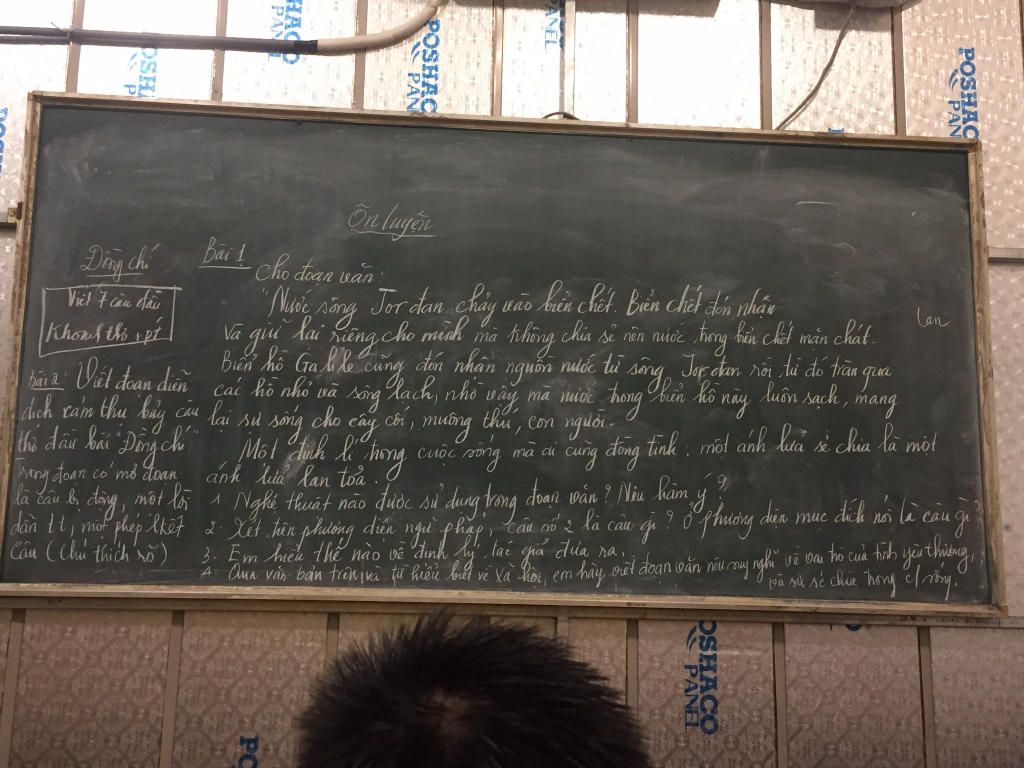 POSHACO PANEL
Ôn luyện
Đồng chí
Viết 7 câu đầu
Khổ thơ, pt
Bài 2: Viết đoạn diễn
dịch cảm thụ bảy câu
thơ đầu bài "Đồng chí"
Trong đoạn có mở đoạn
là câu bị động, một lời
dẫn tt, một phép lkết
câu (chú thích rõ)
Bài 1
Cho đoạn văn:
"Nước sông Jor đan chảy vào biển chết. Biển chết đón nhận
và giữ lại riêng cho mình mà không chia sẻ nên nước trong biển chết mặn chát.
Biển hồ Ga li lê cũng đón nhận nguồn nước từ sông Jor đan rồi từ đó tràn qua
các hồ nhỏ và sông lạch, nhờ vậy mà nước trong biển hồ này luôn sạch, mang
lại sự sống cho cây cối, muông thú, con người.
Một định lí trong cuộc sống mà ai cũng đồng tình: một ánh lửa sẻ chia là một
ánh lửa lan toả.
1 Nghệ thuật nào được sử dụng trong đoạn văn? Nêu hàm ý?
2. Xét trên phương diện ngữ pháp, câu số 2 là câu gì? Ở phương diện mục đích nói là câu gì?
3. Em hiểu thế nào về định lý tác giả đưa ra.
4. Qua văn bản trên và tự hiểu biết về xã hội, em hãy viết đoạn văn nêu suy nghĩ về vai trò của tình yêu thương,
và sự sẻ chia trong c/sống.
lan
POSHACO PANEL